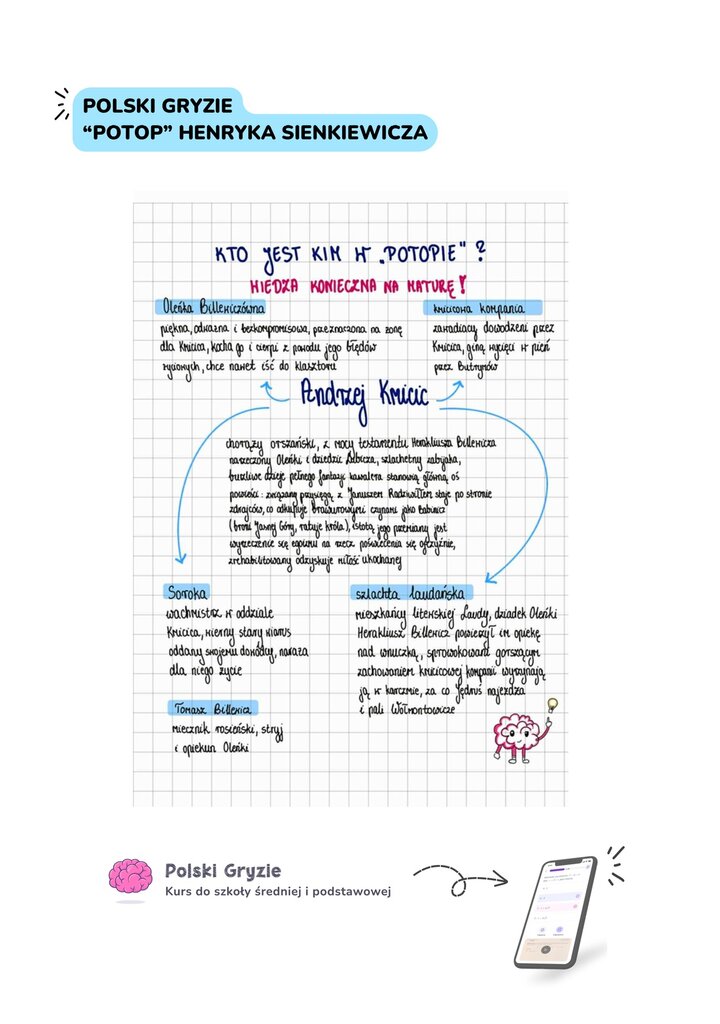 POLSKI GRYZIE
“POTOP” HENRYKA SIENKIEWICZA
KTO JEST KIM W „POTOPIE” ?
WIEDZA KONIECZNA NA MATURĘ!
Oleńka Billewiczówna
piękna, odważna i bezkompromisowa, przeznaczona na żonę
dla Kmicica, kocha go i cierpi z powodu jego błędów
życiowych, chce nawet iść do klasztoru
kmicicowa kompania
zawadiacy dowodzeni przez
Kmicica, giną wycięci w pień
przez Butrymów
Andrzej Kmicic
chorąży orszański, z mocy testamentu Herakliusza Billewicza
narzeczony Oleńki i dziedzic Lubicza, szlachetny zabijaka,
burzliwe dzieje pełnego fantazji kawalera stanowią główną oś
powieści: związany przysięgą, z Januszem Radziwiłłem staje po stronie
zdrajców, co odkupuje brawurowymi czynami jako Babinicz
(broni Jasnej Góry, ratuje króla), istotą jego przemiany jest
wyrzeczenie się egoizmu na rzecz poświęcenia się ojczyźnie,
zrehabilitowany odzyskuje miłość ukochanej
Soroka
wachmistrz w oddziale
Kmicica, wierny stary wiarus
oddany swojemu dowódcy, naraża
dla niego życie
szlachta laudańska
mieszkańcy litewskiej Laudy, dziadek Oleńki
Herakliusz Billewicz powierzył im opiekę
nad wnuczką, sprowokowani gorszącym
zachowaniem kmicicowej kompanii wyrzynają
ją w karczmie, za co Jędruś najeżdża
i pali Wołmontowicze
Tomasz Billewicz
miecznik rosieński, stryj
i opiekun Oleńki
Polski Gryzie
Kurs do szkoły średniej i podstawowej